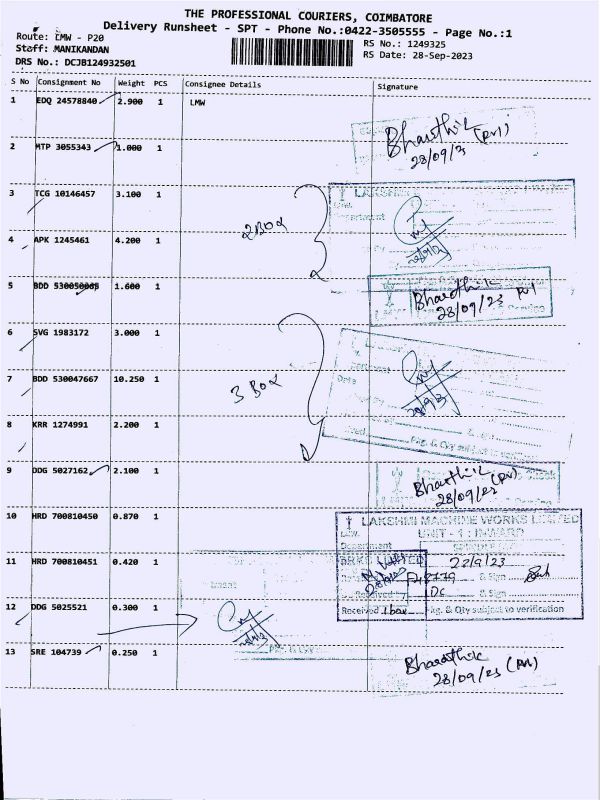 THE PROFESSIONAL COURIERS, COIMBATORE
Delivery Runsheet - SPT - Phone No.:0422-3505555 - Page No.:1
Route: LMW - P20
Staff: MANIKANDAN
DRS No.: DCJB124932501
RS No.: 1249325
RS Date: 28-Sep-2023
S No Consignment No Weight PCS Consignee Details Signature
1 EDQ 24578840 2.900 1 LMW
Bharathik (PU)
28/09/23
2 MTP 3055343 1.000 1
3 TCG 10146457 3.100 1
LAKSHMI
2 Box
4 APK 1245461 4.200 1
5 BDD 530050005 1.600 1
Bharathik PU
28/09/23
6 SVG 1983172 3.000 1
Date
7 BDD 530047667 10.250 1
3 Box
8 KRR 1274991 2.200 1
Pkg. & Qty subject to verification
9 DDG 5027162 2.100 1
Bharathik (PU)
28/09/23
10 HRD 700810450 0.870 1
LAKSHMI MACHINE WORKS LIMITED
UNIT - 1 : INWARD
Department
11 HRD 700810451 0.420 1
& Sign
Received by DC & Sign
12 DDG 5025521 0.300 1
Received 1 box Pkg. & Qty subject to verification
13 SRE 104739 0.250 1
Bharathik (PU)
28/09/23